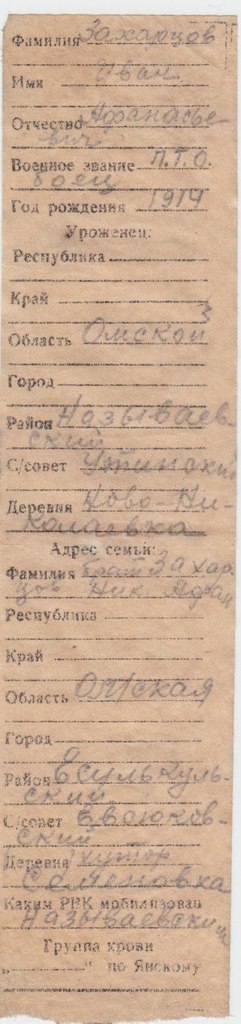 Фамилия Захарцов
Имя Иван
Отчество Афанасье-
вич
Военное звание п.т.о.
боец
Год рождения 1914
Уроженец:
Республика
Край
Область Омской
Город
Район Называев-
ский
С/совет Утинский
Деревня Ново-Ни-
колаевка
Адрес семьи:
Фамилия брат Захар-
цов Ник. Афан
Республика
Край
Область Омская
Город
Район Есилькуль-
ский
С/совет
ский
Деревня хутор
Семеновка
Каким РВК мобилизован
Называевским
Группа крови
„ “ по Янскому